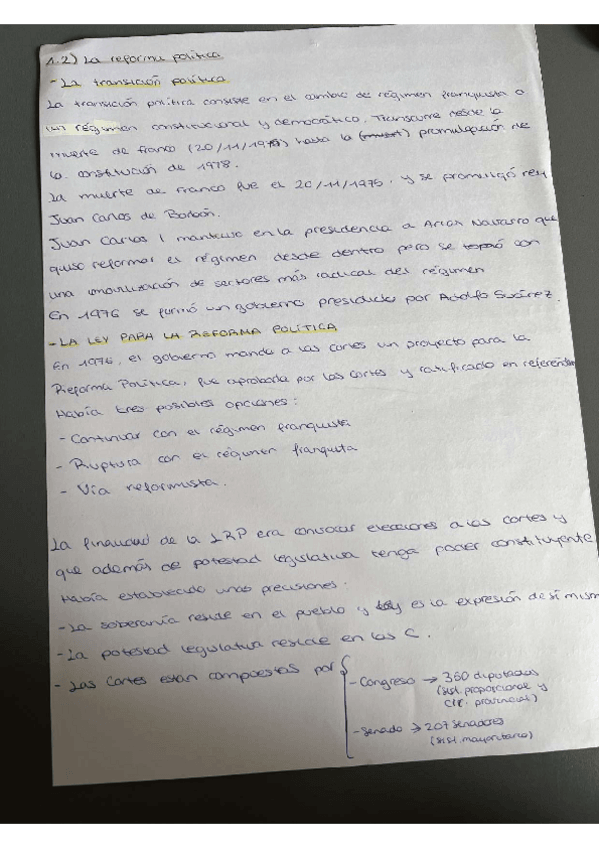 1.2) La reforma política
- La transición política
La transición política consiste en el cambio de régimen franquista a
un régimen constitucional y democrático. Transcurre desde la
muerte de franco (20/11/1975) hasta la promulgación de
la constitución de 1978.
La muerte de franco fue el 20/11/1975, y se promulgó rey
Juan Carlos de Borbón.
Juan Carlos I mantuvo en la presidencia a Arias Navarro que
quiso reformar el régimen desde dentro pero se topó con
una movilización de sectores más radical del régimen
En 1976 se formó un gobierno presidido por Adolfo Suárez.
- LA LEY PARA LA REFORMA POLÍTICA
En 1976, el gobierno manda a las cortes un proyecto para la
Reforma Política, fue aprobada por las cortes y ratificado en referéndum
Había tres posibles opciones:
- Continuar con el régimen franquista
- Ruptura con el régimen franquita
- Vía reformista.
La finalidad de la LRP era convocar elecciones a las cortes y
que además de potestad legislativa tenga poder constituyente
Había establecido unas precisiones:
- La soberanía reside en el pueblo y ley es la expresión de sí mism
- La potestad legislativa reside en las C.
- Las Cortes están compuestas por {
- Congreso → 350 diputados
(sist. proporcional y
cir. provincial)
- Senado → 207 senadores
(sist. mayoritario)